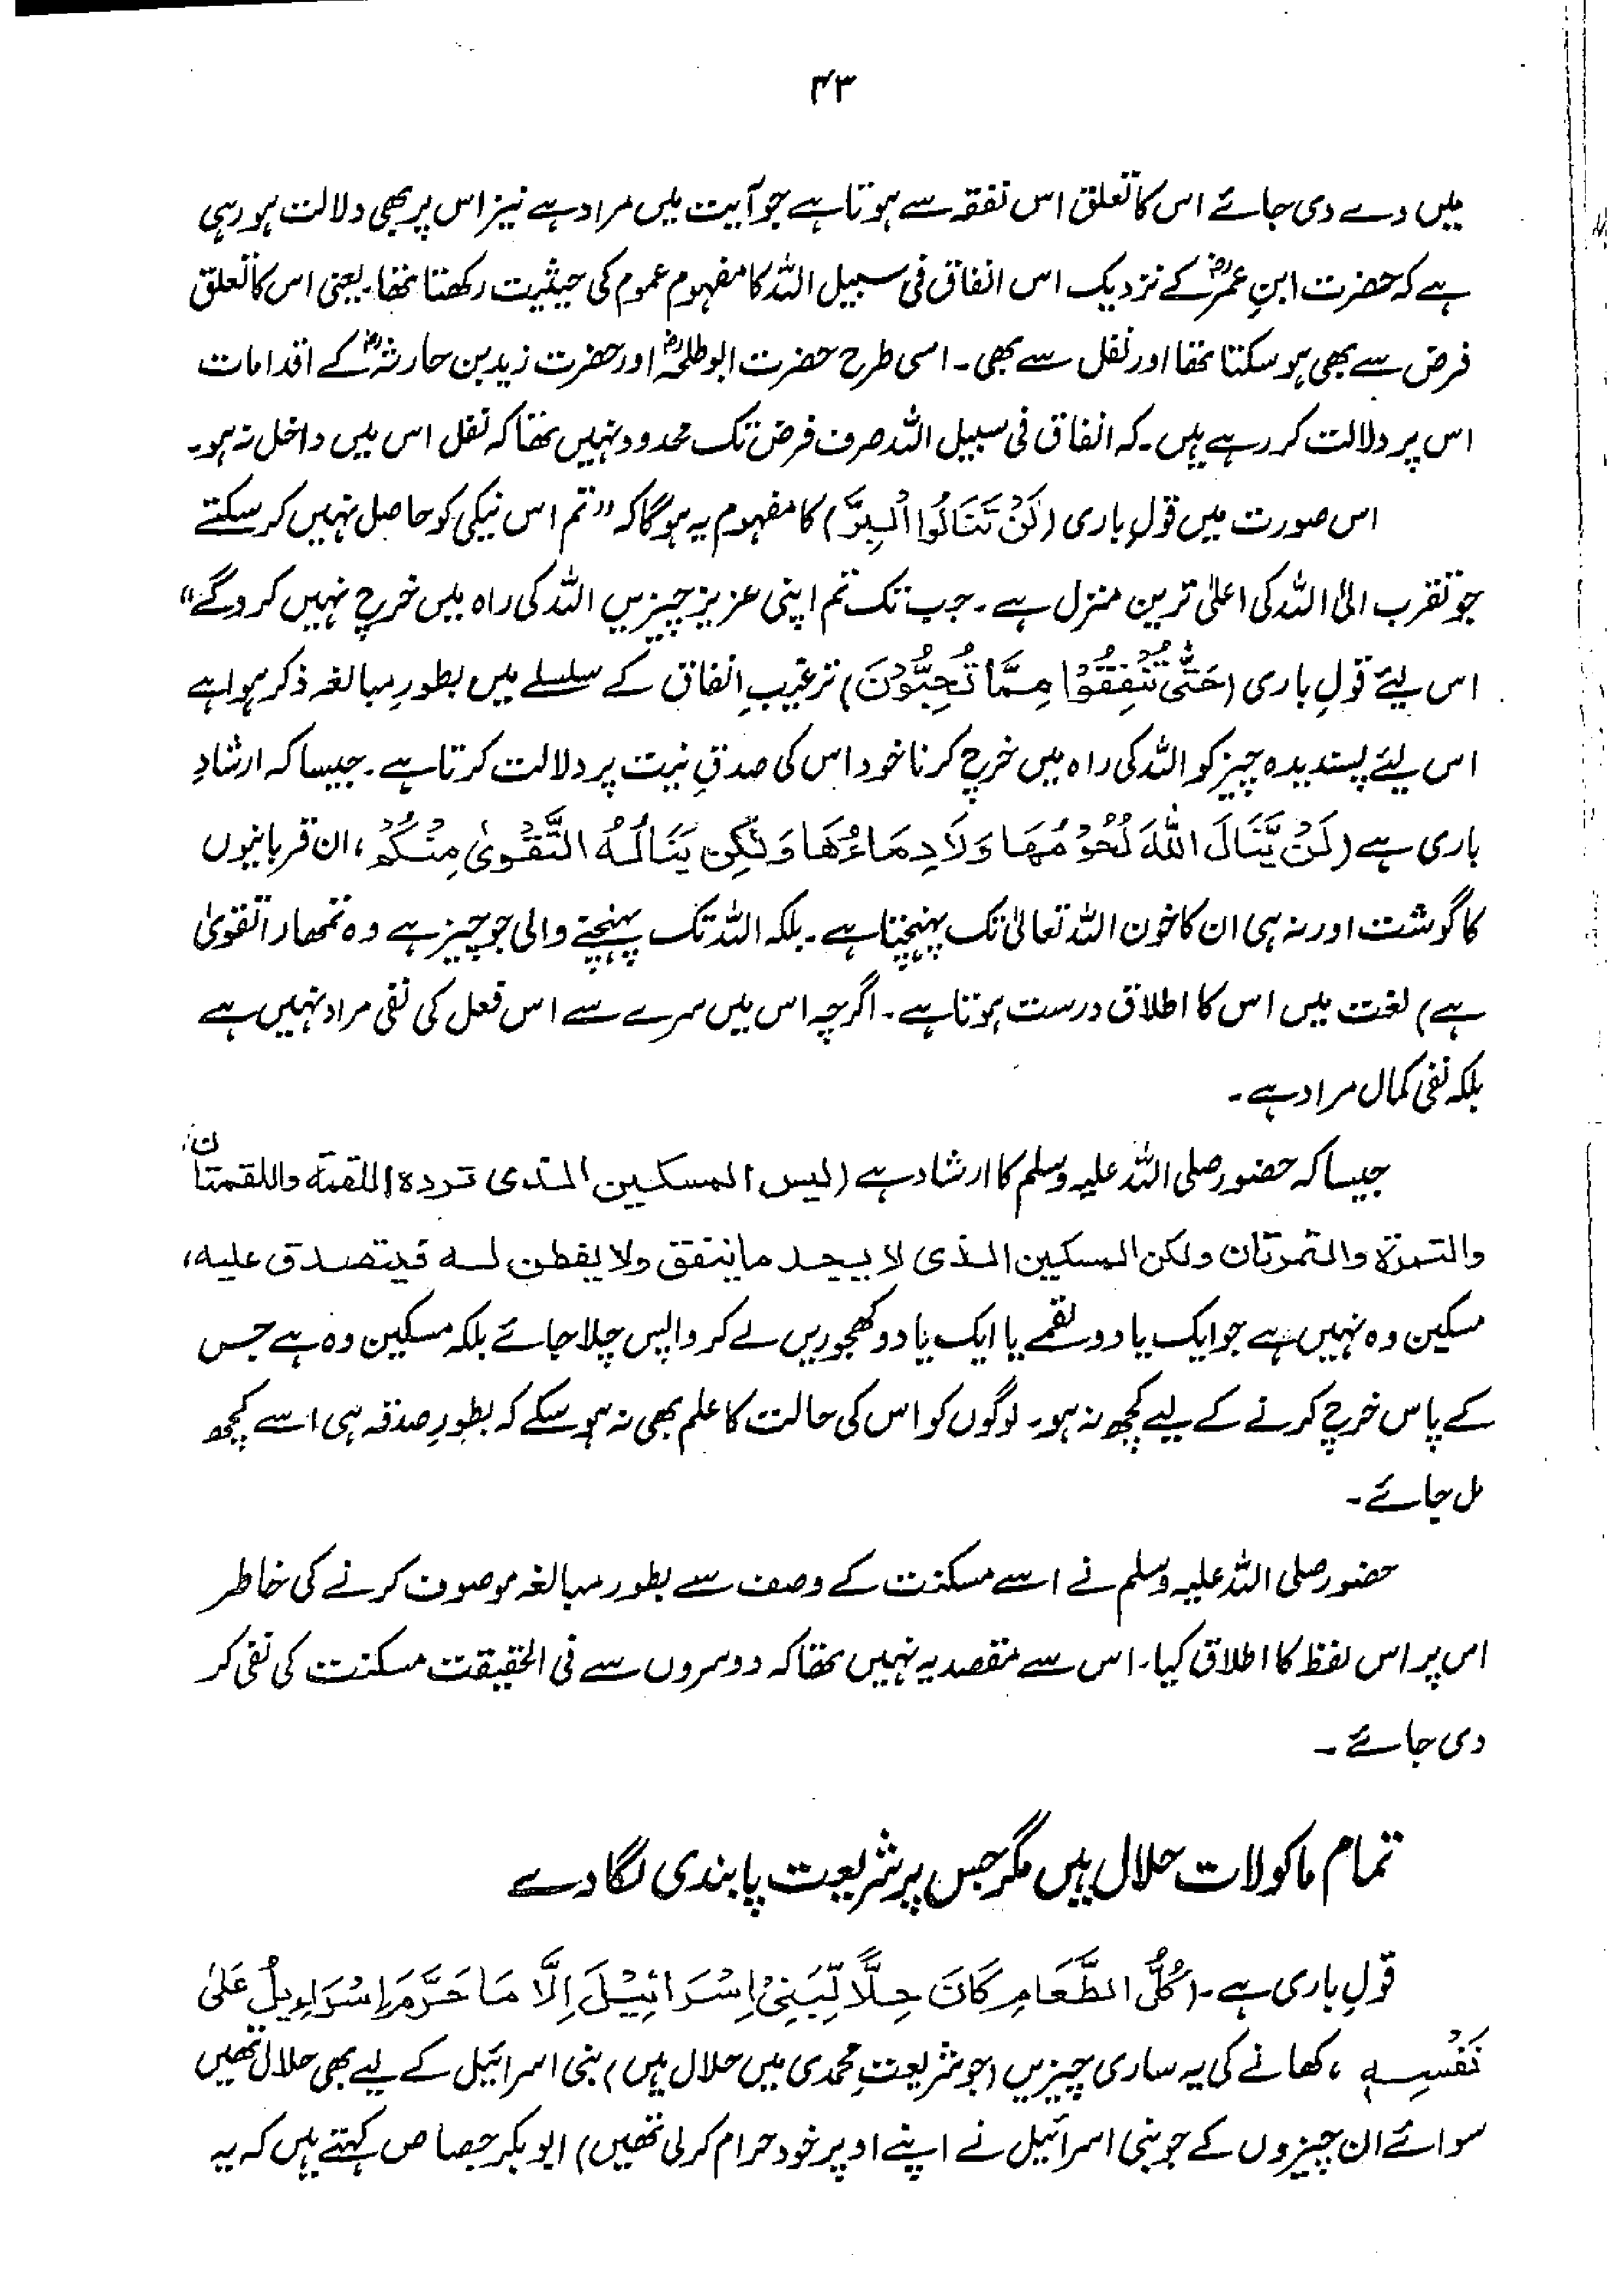 ۴۳
میں دے دی جائے اس کا تعلق اس نفقہ سے ہوتا ہے جو آیت میں مراد ہے نیز اس پر بھی دلالت ہو رہی
ہے کہ حضرت ابنِ عمرؓ کے نزدیک اس انفاق فی سبیل اللہ کا مفہوم عموم کی حیثیت رکھتا تھا۔ یعنی اس کا تعلق
فرض سے بھی ہو سکتا تھا اور نفل سے بھی۔ اسی طرح حضرت ابوطلحہؓ اور حضرت زید بن حارثہؓ کے اقدامات
اس پر دلالت کر رہے ہیں۔ کہ انفاق فی سبیل اللہ صرف فرض تک محدود نہیں تھا کہ نفل اس میں داخل نہ ہو۔
اس صورت میں قولِ باری (لَنْ تَنَالُوا الْبِرَّ) کا مفہوم یہ ہوگا کہ "تم اس نیکی کو حاصل نہیں کر سکتے
جو تقرب الیٰ اللہ کی اعلیٰ ترین منزل ہے۔ جب تک تم اپنی عزیز چیزیں اللہ کی راہ میں خرچ نہیں کرو گے"
اس لیئے قولِ باری (حَتّٰی تُنْفِقُوْا مِمَّا تُحِبُّوْنَ) ترغیبِ انفاق کے سلسلے میں بطورِ مبالغہ ذکر ہوا ہے
اس لیئے پسندیدہ چیز کو اللہ کی راہ میں خرچ کرنا خود اس کی صدقِ نیت پر دلالت کرتا ہے۔ جیسا کہ ارشادِ
باری ہے (لَنْ یَّنَالَ اللّٰہَ لُحُوْمُھَا وَلَا دِمَاءُھَا وَلٰکِن یَنَالُہُ التَّقْوٰی مِنْکُمْ، ان قربانیوں
کا گوشت اور نہ ہی ان کا خون اللہ تعالیٰ تک پہنچتا ہے۔ بلکہ اللہ تک پہنچنے والی جو چیز ہے وہ تمھارا تقویٰ
ہے) لغت میں اس کا اطلاق درست ہوتا ہے۔ اگرچہ اس میں سرے سے اس فعل کی نفی مراد نہیں ہے
بلکہ نفی کمال مراد ہے۔
جیسا کہ حضور صلی اللہ علیہ وسلم کا ارشاد ہے (لیس المسکین الذی تردہ اللقمۃ واللقمتان
والتمرۃ والتمرتان ولکن المسکین الذی لا یجد ما ینفق ولا یفطن لہ فیتصدق علیہ،
مسکین وہ نہیں ہے جو ایک یا دو لقمے یا ایک یا دو کھجوریں لے کر واپس چلا جائے بلکہ مسکین وہ ہے جس
کے پاس خرچ کرنے کے لیے کچھ نہ ہو۔ لوگوں کو اس کی حالت کا علم بھی نہ ہو سکے کہ بطورِ صدقہ ہی اسے کچھ
مل جائے۔
حضور صلی اللہ علیہ وسلم نے اسے مسکنت کے وصف سے بطور مبالغہ موصوف کرنے کی خاطر
اس پر اس لفظ کا اطلاق کیا۔ اس سے مقصد یہ نہیں تھا کہ دوسروں سے فی الحقیقت مسکنت کی نفی کر
دی جائے۔
تمام ماکولات حلال ہیں مگر جس پر شریعت پابندی لگا دے
قولِ باری ہے۔ (کُلُّ الطَّعَامِ کَانَ حِلًّا لِّبَنِیْ اِسْرَائِیْلَ اِلَّا مَا حَرَّمَ اِسْرَاءِیلُ عَلیٰ
نَفْسِہٖ، کھانے کی یہ ساری چیزیں (جو شریعتِ محمدی میں حلال ہیں) بنی اسرائیل کے لیے بھی حلال تھیں
سوائے ان چیزوں کے جو بنی اسرائیل نے اپنے اوپر خود حرام کر لی تھیں) ابوبکر جصاص کہتے ہیں کہ یہ